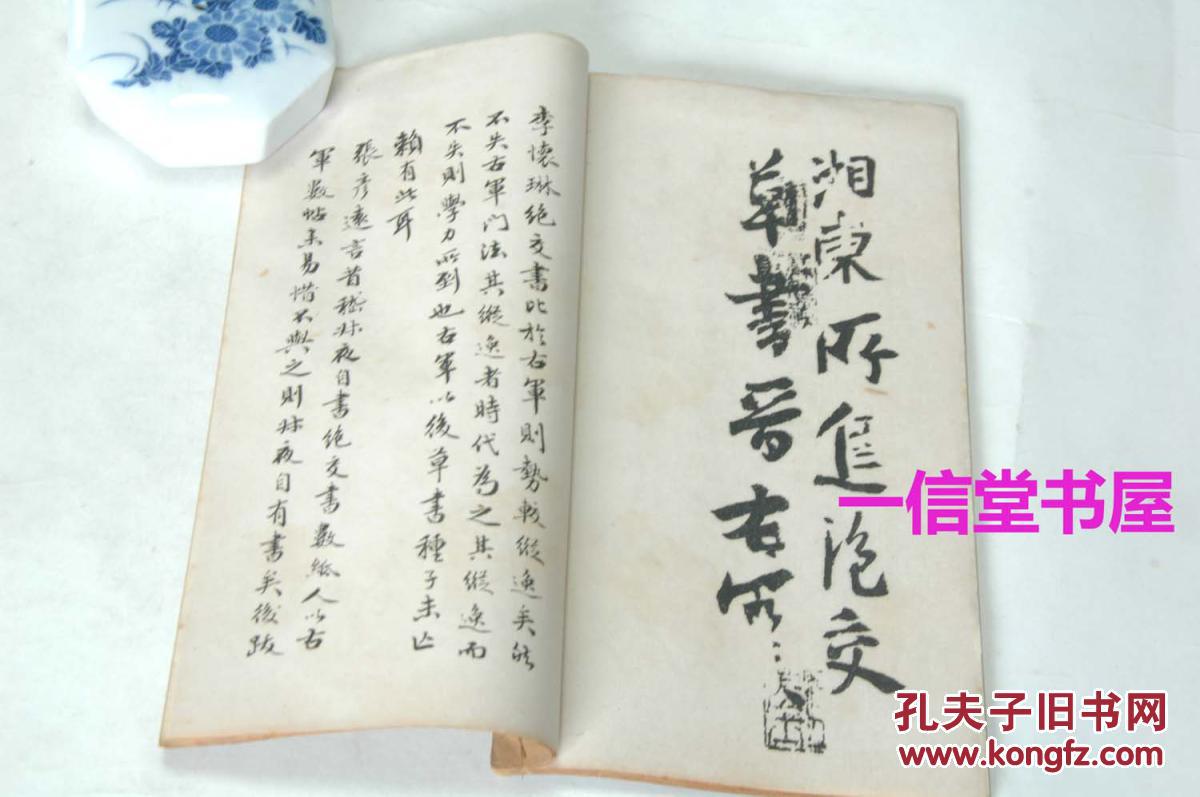 湘東所進絕交
草書晉右軍
李懷琳絕交書比於右軍則勢較縱逸矣然
不失右軍門法其縱逸者時代為之其縱逸而
不失則學力所到也右軍以後草書種子未亡
賴有此耳
張彥遠言昔嵇叔夜自書絕交書數紙人以右
軍數帖來易惜不與之則叔夜自有書矣後跋
一信堂书屋
孔夫子旧书网
www.kongfz.com